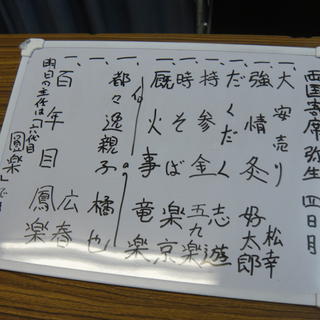 両国寄席 弥生 四日目
一、大安売り 松幸
一、強情灸 好太郎
一、だくだく 志遊
一、持参金 五九楽
一、時そば 楽京
一、厩火事 竜楽
仲
一、都々逸親子 橘也
一、百年目 広春
鳳楽
明日の主任は六代目
圓楽
です